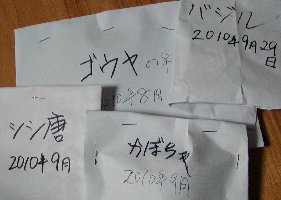 バジル
2010年9月29
日
ゴウヤの
2010年8月
シシ唐
2010年9月
かぼちゃ
2010年9月